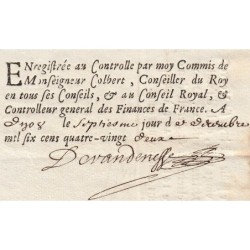 ENregistrée au Controlle par moy Commis de
Monseigneur Colbert, Conseiller du Roy
en tous ses Conseils, & au Conseil Royal, &
Controlleur general des Finances de France. A
dyon le septiesme jour de decembre
mil six cens quatre-vingt deux
Devandenesse